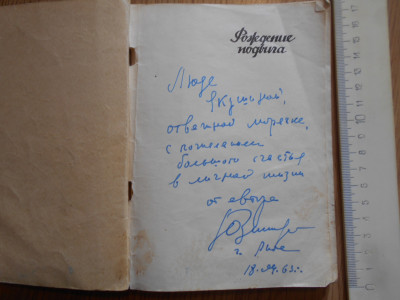 Рождение
подвига
Люде
Якушиной,
отличной морячке,
с пожеланием
большого счастья
в личной жизни
от автора
г. Рига
63 г.